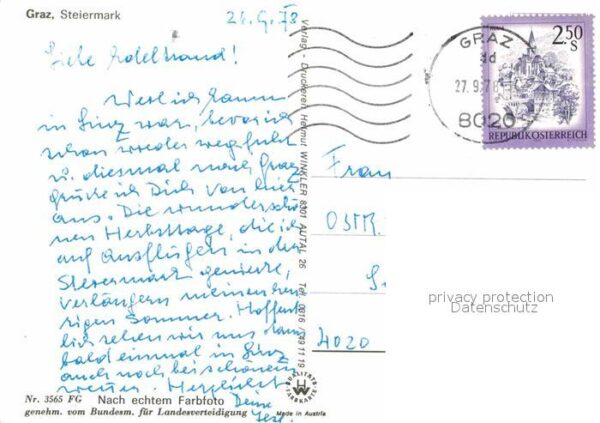 Graz, Steiermark
26.9.78
Liebe Edeltraud!
Weil ich kaum
in Linz war, bevor ich
schon wieder wegfuhr
u. diesmal nach Graz
grüße ich Dich von hier
aus. Die wunderschö-
nen Herbsttage, die ich
auf Ausflügen in der
Steiermark genieße,
verlängern meinen heu-
rigen Sommer. Hoffent-
lich sehen wir uns dann
bald einmal in Linz
auch noch bei schönem
Wetter. Herzlichst
Deine
Nr. 3565 FG Nach echtem Farbfoto
genehm. vom Bundesm. für Landesverteidigung
Verlag - Druckerei Helmut WINKLER 8301 AUTAL 26 Tel. 0316 / 49 11 19
QUALITÄTS FARBKARTE
Made in Austria
GRAZ
27.9.78
8020
2.50
S
REPUBLIK ÖSTERREICH
Frau
4020
privacy protection
Datenschutz